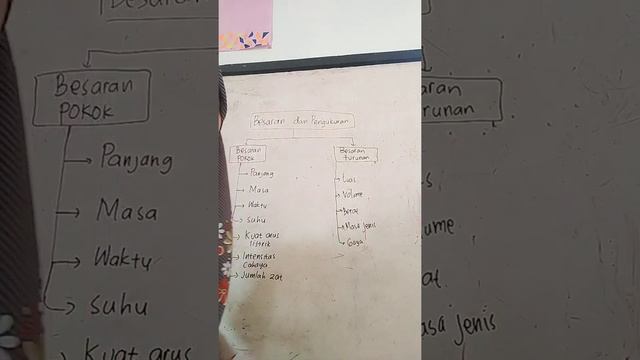 Besaran dan Pengukuran
Besaran
Pokok
Panjang
Masa
Waktu
Suhu
Kuat arus
listrik
Intensitas
Cahaya
Jumlah zat
Besaran
turunan
Luas
Volume
Berat
Masa jenis
Gaya
Besaran
POKOK
Panjang
Masa
Waktu
Suhu
Kuat arus
aran
runan
ume
at
asa jenis